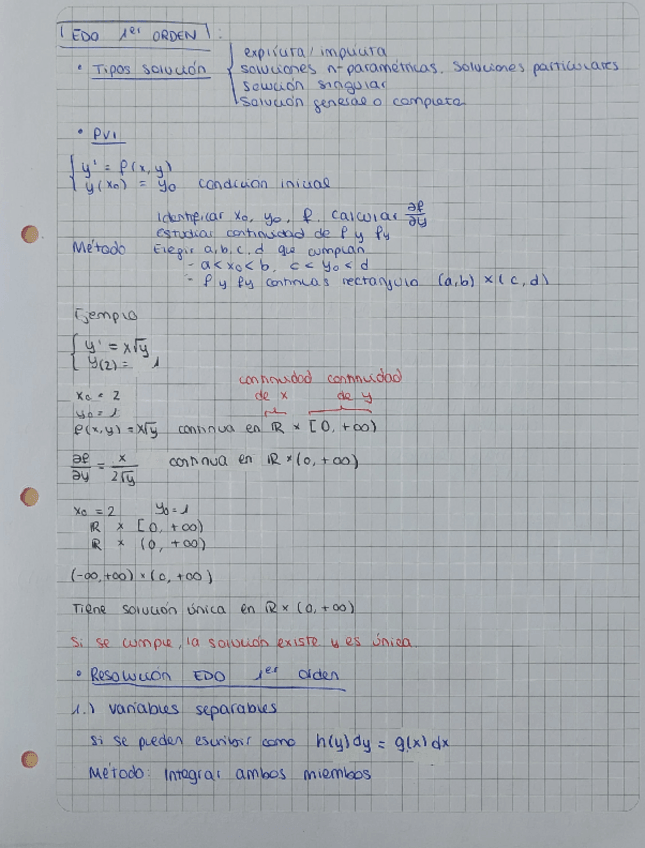 EDO 1er ORDEN :
• Tipos solución { explícita / implícita
soluciones n-paramétricas. Soluciones particulares
solución singular
Solución general o completa
• PVI
{ y' = f(x,y)
y(x0) = y0 condición inicial
Identificar x0, y0, f. Calcular ∂f/∂y
Estudiar continuidad de f y fy
Método Elegir a,b,c,d que cumplan
- a<x0<b, c<y0<d
- f y fy continuas rectángulo (a,b) x (c,d)
Ejemplo
{ y' = x√y
y(2) = 1
continuidad continuidad
x0 = 2 de x de y
y0 = 1
f(x,y) = x√y continua en ℝ x [0, +∞)
∂f/∂y = x/2√y continua en ℝ x (0, +∞)
x0 = 2 y0 = 1
ℝ x [0, +∞)
ℝ x (0, +∞)
(-∞, +∞) x (0, +∞)
Tiene solución única en ℝ x (0, +∞)
Si se cumple, la solución existe y es única.
• Resolución EDO 1er orden
1.) variables separables
Si se pueden escribir como h(y)dy = g(x)dx
Método: Integrar ambos miembos